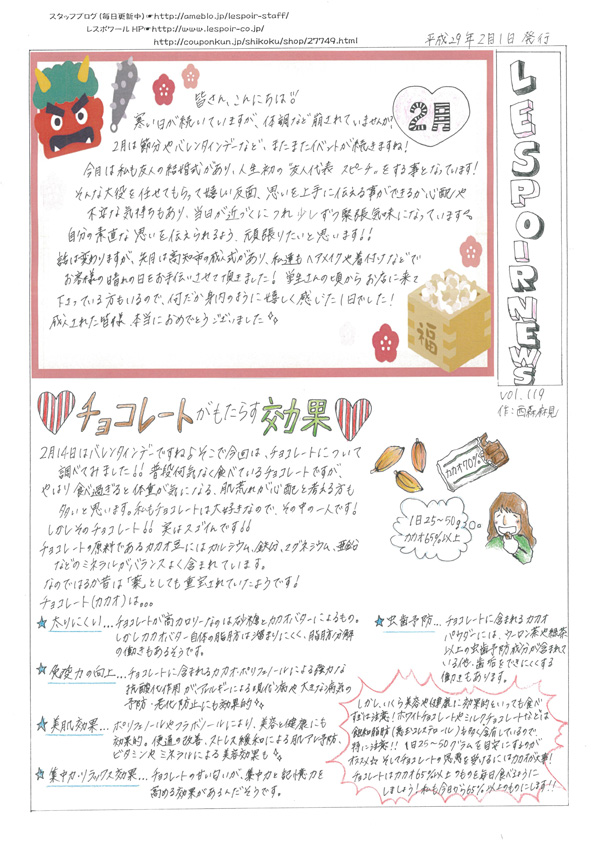 スタッフブログ(毎日更新中)☛http://ameblo.jp/lespoir-staff/
レスポワールHP☛http://www.lespoir-co.jp/
http://couponkun.jp/shikoku/shop/27749.html
平成29年2月1日 発行
LESPOIR NEWS
vol.119
作:西森
2月
皆さん、こんにちは!!
寒い日が続いていますが、体調など崩されていませんか?
2月は節分やバレンタインデーなど、まだまだイベントが続きますね!
今月は私も友人の結婚式があり、人生初の“友人代表 スピーチ”をする事となっています!
そんな大役を任せてもらって嬉しい反面、思いを上手に伝える事ができるか心配や
不安な気持ちもあり、当日が近づくにつれ少しずつ緊張気味になっています
自分の素直な思いを伝えられるよう、頑張りたいと思います!!
話は変わりますが、先月は高知市の成人式があり、私達もヘアメイクや着付けなどで
お客様の晴れの日をお手伝いさせて頂きました!学生さんの頃からお店に来て
下さっている方もいるので、何だか身内のように嬉しく感じた1日でした!
成人された皆様、本当におめでとうございました
福
チョコレートがもたらす効果
2月14日はバレンタインデーですね♪そこで今回は、チョコレートについて
調べてみました!!普段何気なく食べているチョコレートですが、
やはり食べ過ぎると体重が気になる、肌荒れが心配と考える方も
多いと思います。私もチョコレートは大好きなので、その中の一人です!
しかしそのチョコレート!!実はスゴイんです!!
チョコレートの原料であるカカオ豆にはカルシウム、鉄分、マグネシウム、亜鉛
などのミネラルがバランスよく含まれています。
なのではるか昔は「薬」としても重宝されていたようです!
チョコレート(カカオ)は。。。
カカオ70%
1日25~50g
カカオ65%以上
★太りにくい…チョコレートが高カロリーなのは砂糖とカカオバターによるもの。
しかしカカオバター自体の脂肪は溜まりにくく、脂肪分解
の働きもあるそうです。
★免疫力の向上…チョコレートに含まれるカカオポリフェノールによる強力な
抗酸化作用がアレルギーによる現代病や大きな病気の
予防・老化防止にも効果的
★美肌効果…ポリフェノールやフラボノールにより、美容と健康にも
効果的。便通の改善、ストレス緩和による肌アレ予防、
ビタミンやミネラルによる美容効果も
★集中力・リラックス効果…チョコレートの甘い匂いが、集中力と記憶力を
高める効果があるんだそうです。
★虫歯予防…チョコレートに含まれるカカオ
パウダーには、ウーロン茶や緑茶
以上の虫歯予防成分が含まれて
いる他、歯垢をできにくくする
働きもあります。
しかし、いくら美容や健康に効果的といっても食べ
すぎは注意!ホワイトチョコレートやミルクチョコレートなどは
飽和脂肪(悪玉コレステロール)を多く含有しているので、
特に注意!!1日25~50グラムを目安にするのが
オススメ☆そしてチョコレートの恩恵を受けるにはカカオが大事!
チョコレートはカカオ65%以上のものを毎日食べるように
しましょう!私も今日から65%以上のものにします!!